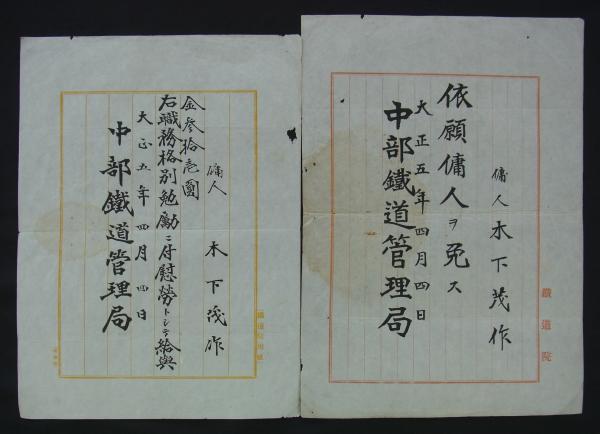 傭人 木下茂作
依願傭人ヲ免ス
大正五年四月四日
中部鐵道管理局
鐵道院
傭人 木下茂作
金参拾壱圓
右職務格別勉励ニ付慰労トシテ給與
大正五年四月四日
中部鐵道管理局